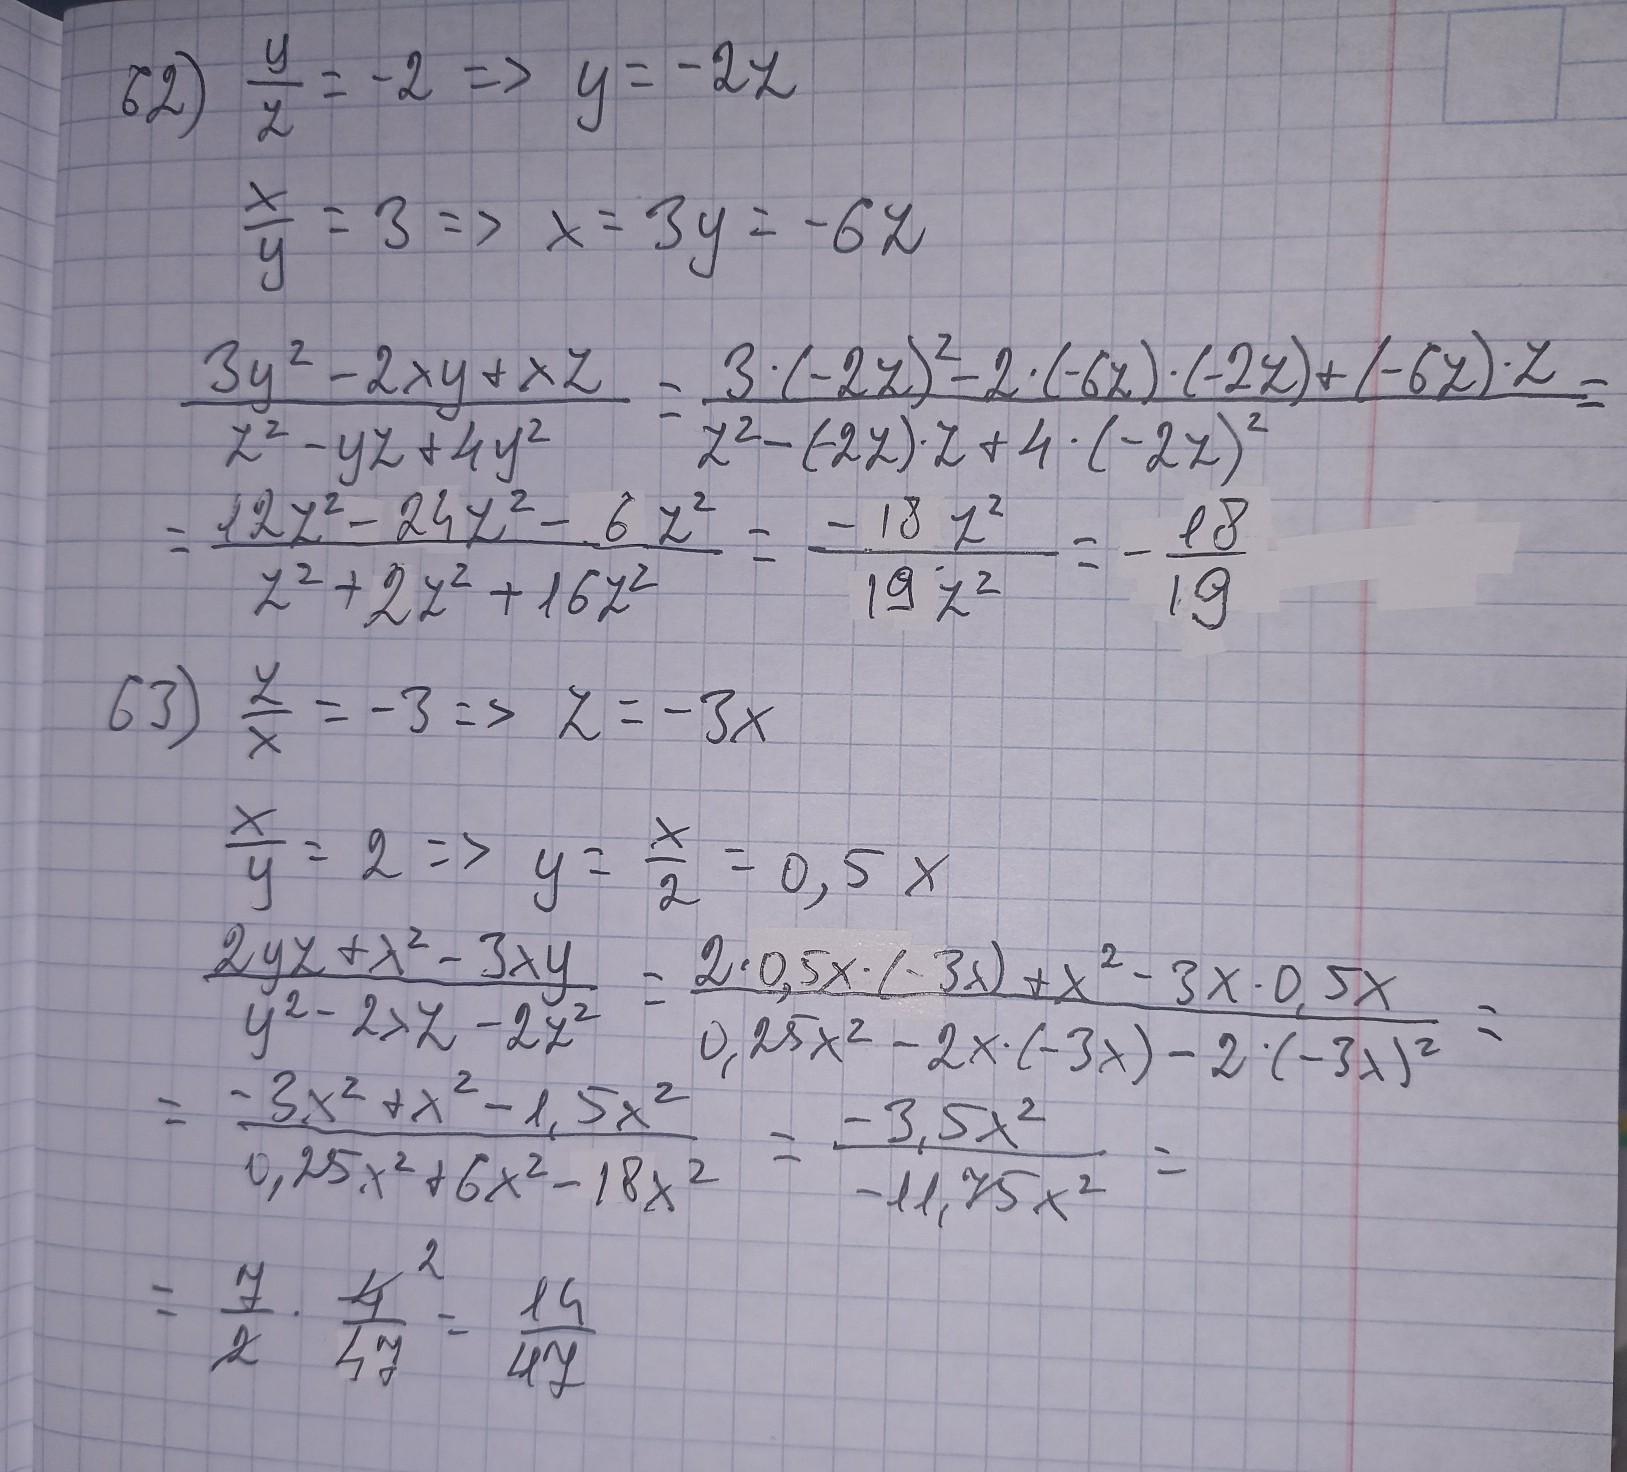 62) y/z = -2 => y = -2z
x/y = 3 => x = 3y = -6z
(3y² - 2xy + xz)/(z² - yz + 4y²) = (3·(-2z)² - 2·(-6z)·(-2z) + (-6z)·z)/(z² - (-2z)·z + 4·(-2z)²) =
= (12z² - 24z² - 6z²)/(z² + 2z² + 16z²) = (-18z²)/(19z²) = -18/19
63) z/x = -3 => z = -3x
x/y = 2 => y = x/2 = 0,5x
(2yz + x² - 3xy)/(y² - 2xz - 2z²) = (2·0,5x·(-3x) + x² - 3x·0,5x)/(0,25x² - 2x·(-3x) - 2·(-3x)²) =
= (-3x² + x² - 1,5x²)/(0,25x² + 6x² - 18x²) = (-3,5x²)/(-11,75x²) =
= 7/2 · 4/47 2 = 14/47